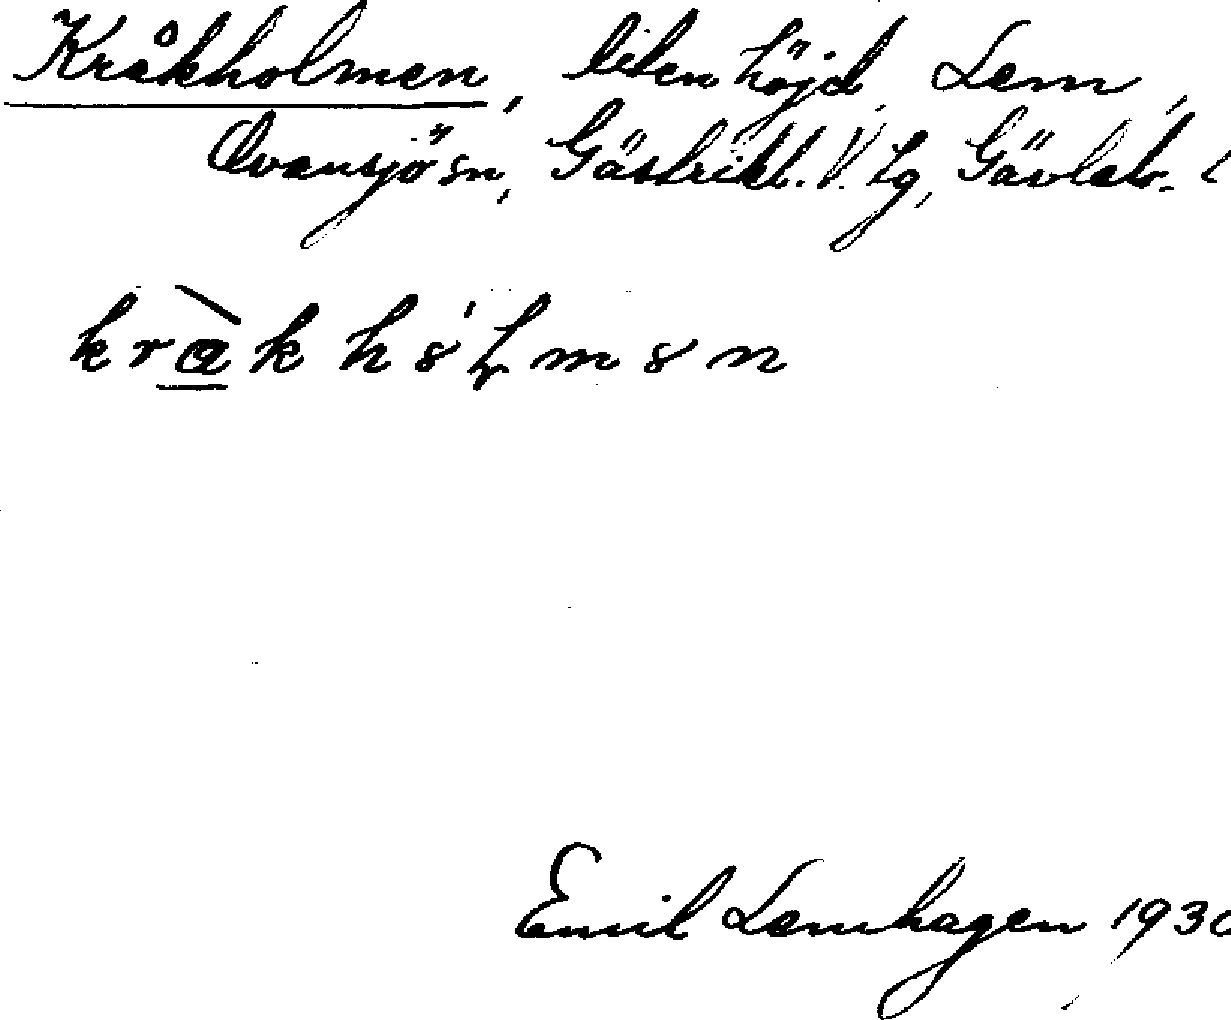 Kråkholmen, liten höjd, Lem,
Ovansjö sn, Gästrikl. V. tg, Gävleb.
Emil Lemhagen 1930